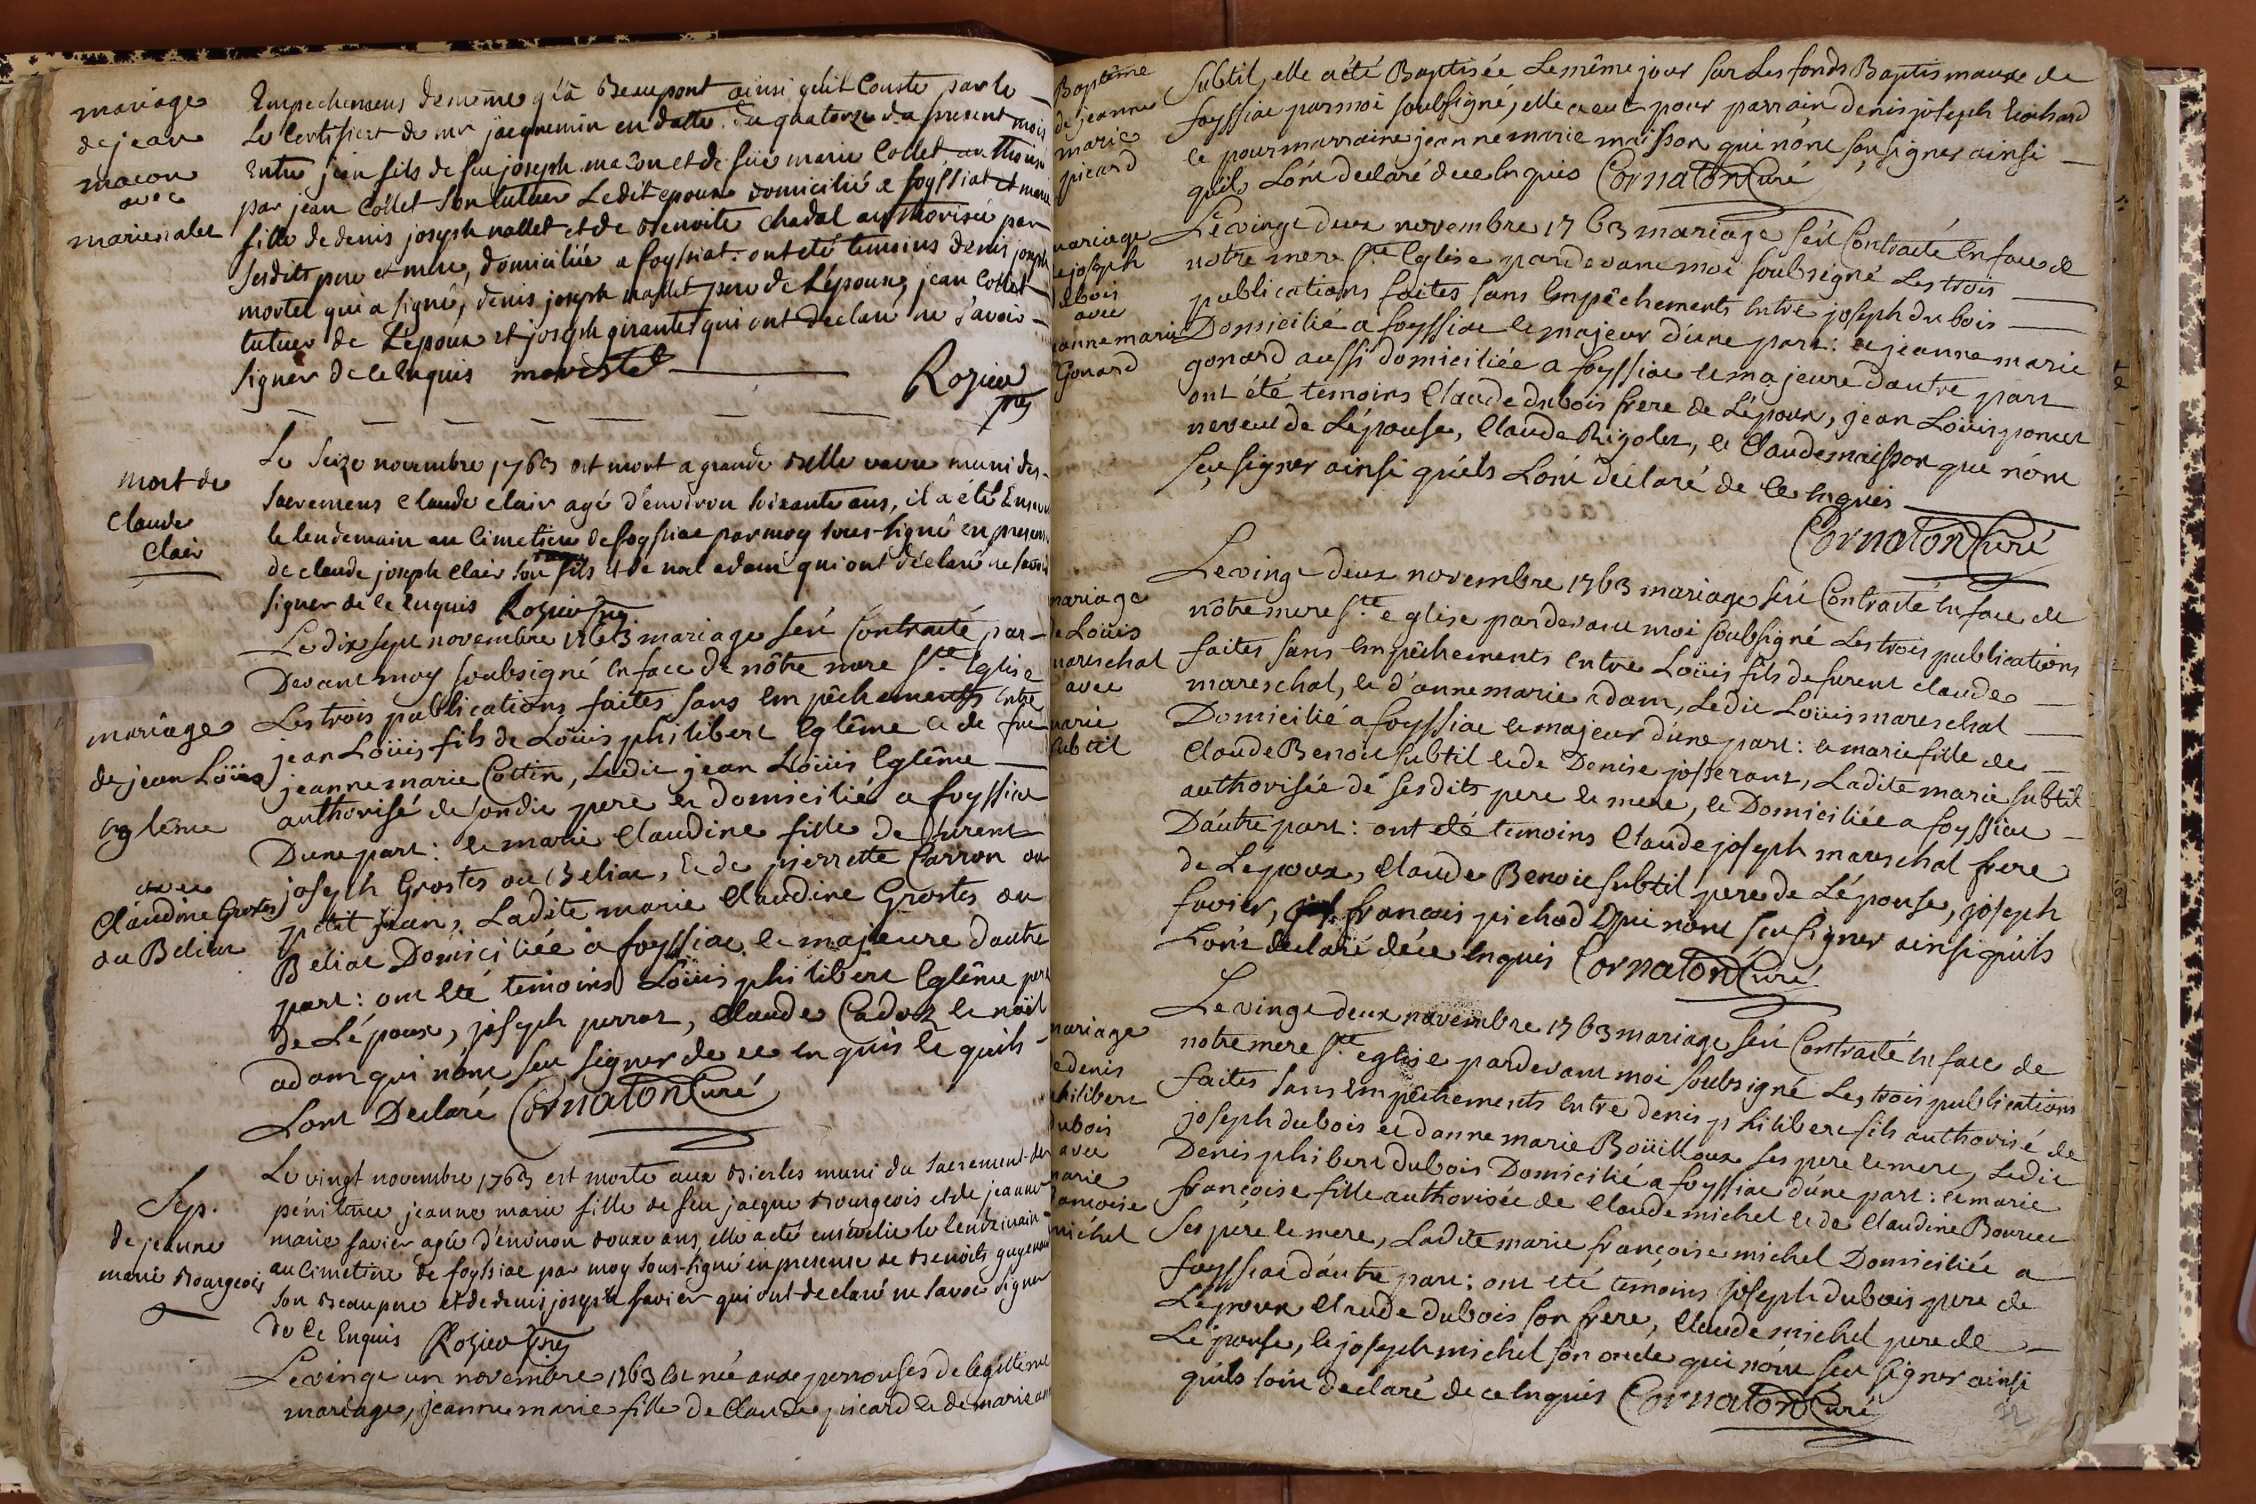 mariage
de jean
macon
avec
marie nalet
Empechemens de même q'à Beaupont ainsi qu'il Conste par le
Le Certificat de mr jacquemin en datte du quatorze du present mois
Entre jean fils de feu joseph macon et de füe marie Collet authorisé
par jean Collet son tuteur Ledit epoux domicilié a foyssiat et marie
fille de denis joseph nallet et de Benoite Chadal authorisée par
sesdits pere et mere, domiciliée a foyssiat. ont été temoins denis joseph
mortel qui a signé, denis joseph nallet pere de L'épouse, jean Collet
tuteur de L'époux et joseph girante qui ont declaré ne savoir
signer de ce Enquis morestel
Rozier
pre
mort de
Claude
Clair
Le seize novembre 1763 est mort a grande selle veuve muni des
sacremens Claude Clair agé d'environ soixante ans, il a été Enseveli
le lendemain au Cimetiere de foyssiac par moy sous-signé en presence
de claude joseph Clair son fils et de noel adam qui ont déclaré ne savoir
signer de ce Enquis Rozier pre
mariage
de jean Loüis
eglême
avec
Claudine Grostes
ou Beliac
Le dix sept novembre 1763 mariage seút Contracté par
Devant moy soubsigné en face de nôtre mere Ste Eglise
Les trois publications faites sans Empêchements entre
jean Loüis fils de Loüis philibert Eglême et de fue
jeanne marie Cottin, Ledit jean Loüis Eglême
authorisé de sondit pere et domicilié a foyssiac
D'une part: et marie Claudine fille de furent
joseph Grostes ou Beliac, et de pierrette Carron ou
petit jean, Ladite marie Claudine Grostes ou
Beliac Domiciliée a foyssiac et majeure d'autre
part: ont eté temoins Loüis philibert Eglême pere
de L'époux, joseph perrot, Claude Cadoz et noël
adam qui n'ont seu signer de ce Enquis et quils
Lont Declaré Cornaton Curé
Sep.
de jeanne
marie Bourgeois
Le vingt novembre 1763 est morte aux Bierles muni du sacrement de
pénitence jeanne marie fille de feu jacque Bourgeois et de jeanne
marie favier agée d'environ douze ans, elle a eté ensevelie le lendemain
au Cimetiere de foyssiac par moy sous-signé en presence de Benoît guyennon
son Beaupere et de denis joseph favier qui ont declaré ne savoir signer
de Ce Enquis Rozier pre
Le vingt un novembre 1763 est née aux perrouses de Legitime
mariage, jeanne marie fille de Claude picard et de marie anne
Baptême
de jeanne
marie
picard
Subtil, elle a été Baptisée Le même jour sur Les fonds Baptismaux de
foyssiac par moi soubsigné, elle a eut pour parrain denis joseph Evohard
et pour marraine jeanne marie maisson qui n'ont seu signer ainsi
quils L'ont declaré de ce Enquis Cornaton Curé
mariage
de joseph
dubois
avec
jeanne marie
Gonard
Le vingt deux novembre 1763 mariage seút Contracté en face de
notre mere Ste Eglise pardevant moi soubsigné Les trois
publications faites sans Empêchements entre joseph dubois
Domicilié a foyssiac et majeur d'une part: et jeanne marie
gonard aussi domiciliée a foyssiac et majeure dautre part
ont été temoins Claude dubois frere de L'époux, jean Loüis poncet
neveut de L'épouse, Claude Rigolet, et Claude maisson qui n'ont
seu signer ainsi quils Lont déclaré de ce Enquis
Cornaton Curé
mariage
de Loüis
mareschal
avec
marie
Subtil
Le vingt deux novembre 1763 mariage seút Contracté en face de
nôtre mere Ste eglise pardevant moi soubsigné Les trois publications
faites sans Empêchements entre Loüis fils de furent claude
mareschal, et d'anne marie adam, Ledit Loüis mareschal
Domicilié a foyssiac et majeur d'une part: et marie fille de
Claude Benoit Subtil et de Denise josserant, Ladite marie Subtil
authorisée de sesdits pere et mere, et Domiciliée a foyssiac
D'autre part: ont été temoins Claude joseph mareschal frere
de Lepoux, Claude Benoit Subtil pere de L'épouse, joseph
favier, françois pichod Qui n'ont seu signer ainsi quils
Lont declaré de ce Enquis Cornaton Curé
mariage
de denis
philibert
dubois
avec
marie
françoise
michel
Le vingt deux novembre 1763 mariage seút Contracté en face de
notre mere Ste eglise pardevant moi soubsigné Les trois publications
faites sans Empêchements entre denis philibert fils authorisé de
joseph dubois et d'anne marie Boüilloux ses pere et mere, Ledit
Denis phibert dubois Domicilié a foyssiac d'une part: et marie
françoise fille authorisée de Claude michel et de Claudine Bourcet
ses pere et mere, Ladite marie françoise michel Domiciliée a
foyssiac d'autre part: ont eté temoins joseph dubois pere de
L'epoux Claude dubois son frere, Claude michel pere de
L'épouse, et joseph michel son oncle qui n'ont seu signer ainsi
quils lont declaré de ce Enquis Cornaton Curé